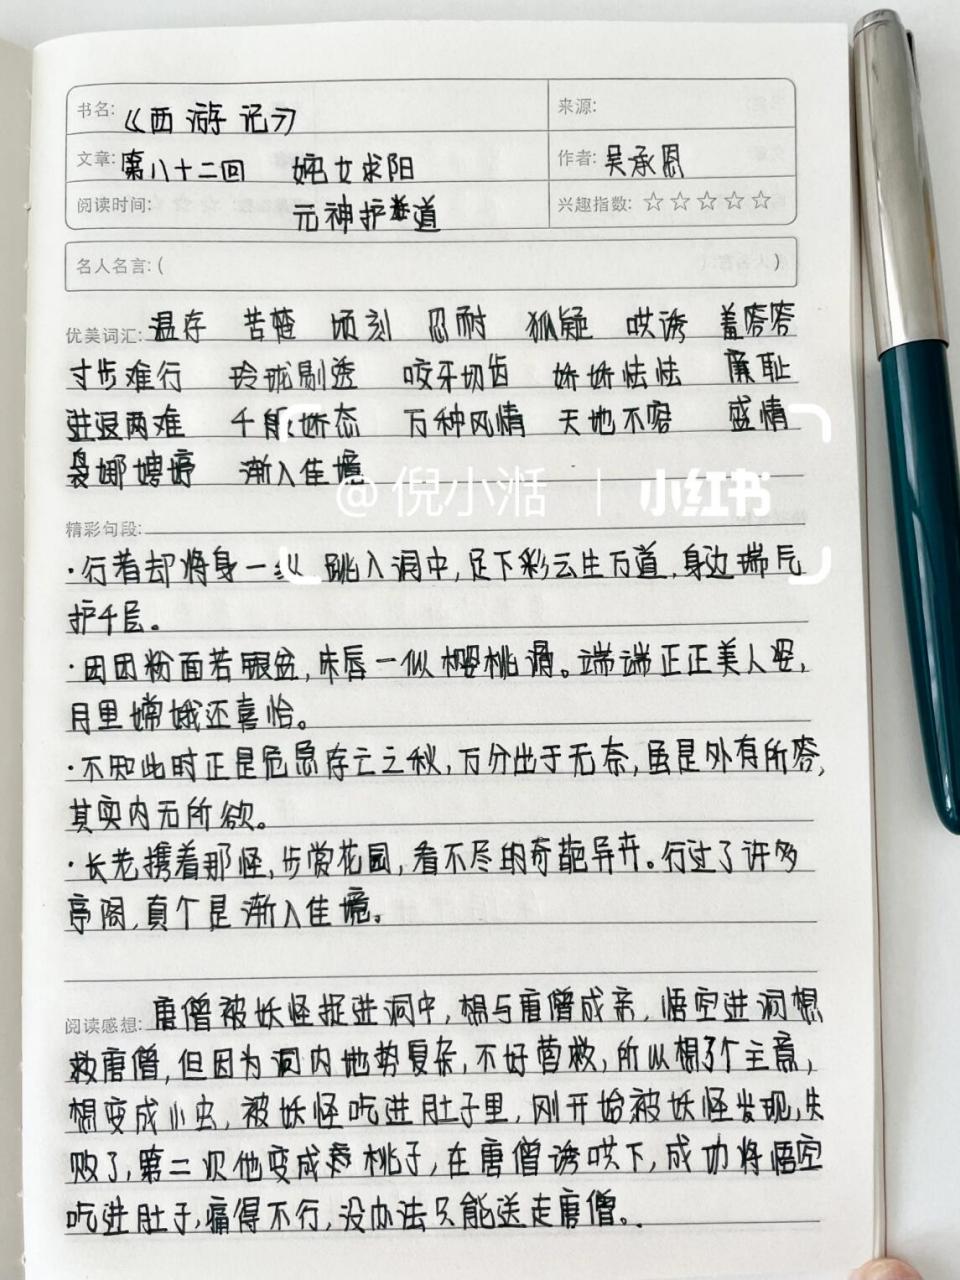 书名: 《西游记》
来源:
文章: 第八十二回 姹女求阳
作者: 吴承恩
阅读时间: 元神护道
兴趣指数: ☆☆☆☆☆
名人名言: ( )
优美词汇: 温存 苦楚 顷刻 忍耐 狐疑 哄诱 羞答答
寸步难行 玲珑剔透 咬牙切齿 娇娇怯怯 廉耻
进退两难 千般娇态 万种风情 天地不容 盛情
袅娜娉婷 渐入佳境
@倪小湉 | 小红书
精彩句段:
·行者却将身一纵 跳入洞中,足下彩云生万道,身边瑞气
护千层。
·团团粉面若银盆,朱唇一似樱桃滑。端端正正美人姿,
月里嫦娥还喜恰。
·不知此时正是危急存亡之秋,万分出于无奈,虽是外有所答,
其实内无所欲。
·长老携着那怪,步赏花园,看不尽的奇葩异卉。行过了许多
亭阁,真个是渐入佳境。
阅读感想: 唐僧被妖怪捉进洞中,想与唐僧成亲,悟空进洞想
救唐僧,但因为洞内地势复杂,不好营救,所以想了个主意,
想变成小虫,被妖怪吃进肚子里,刚开始被妖怪发现,失
败了,第二次他变成桃子,在唐僧诱哄下,成功将悟空
吃进肚子,痛得不行,没办法只能送走唐僧。